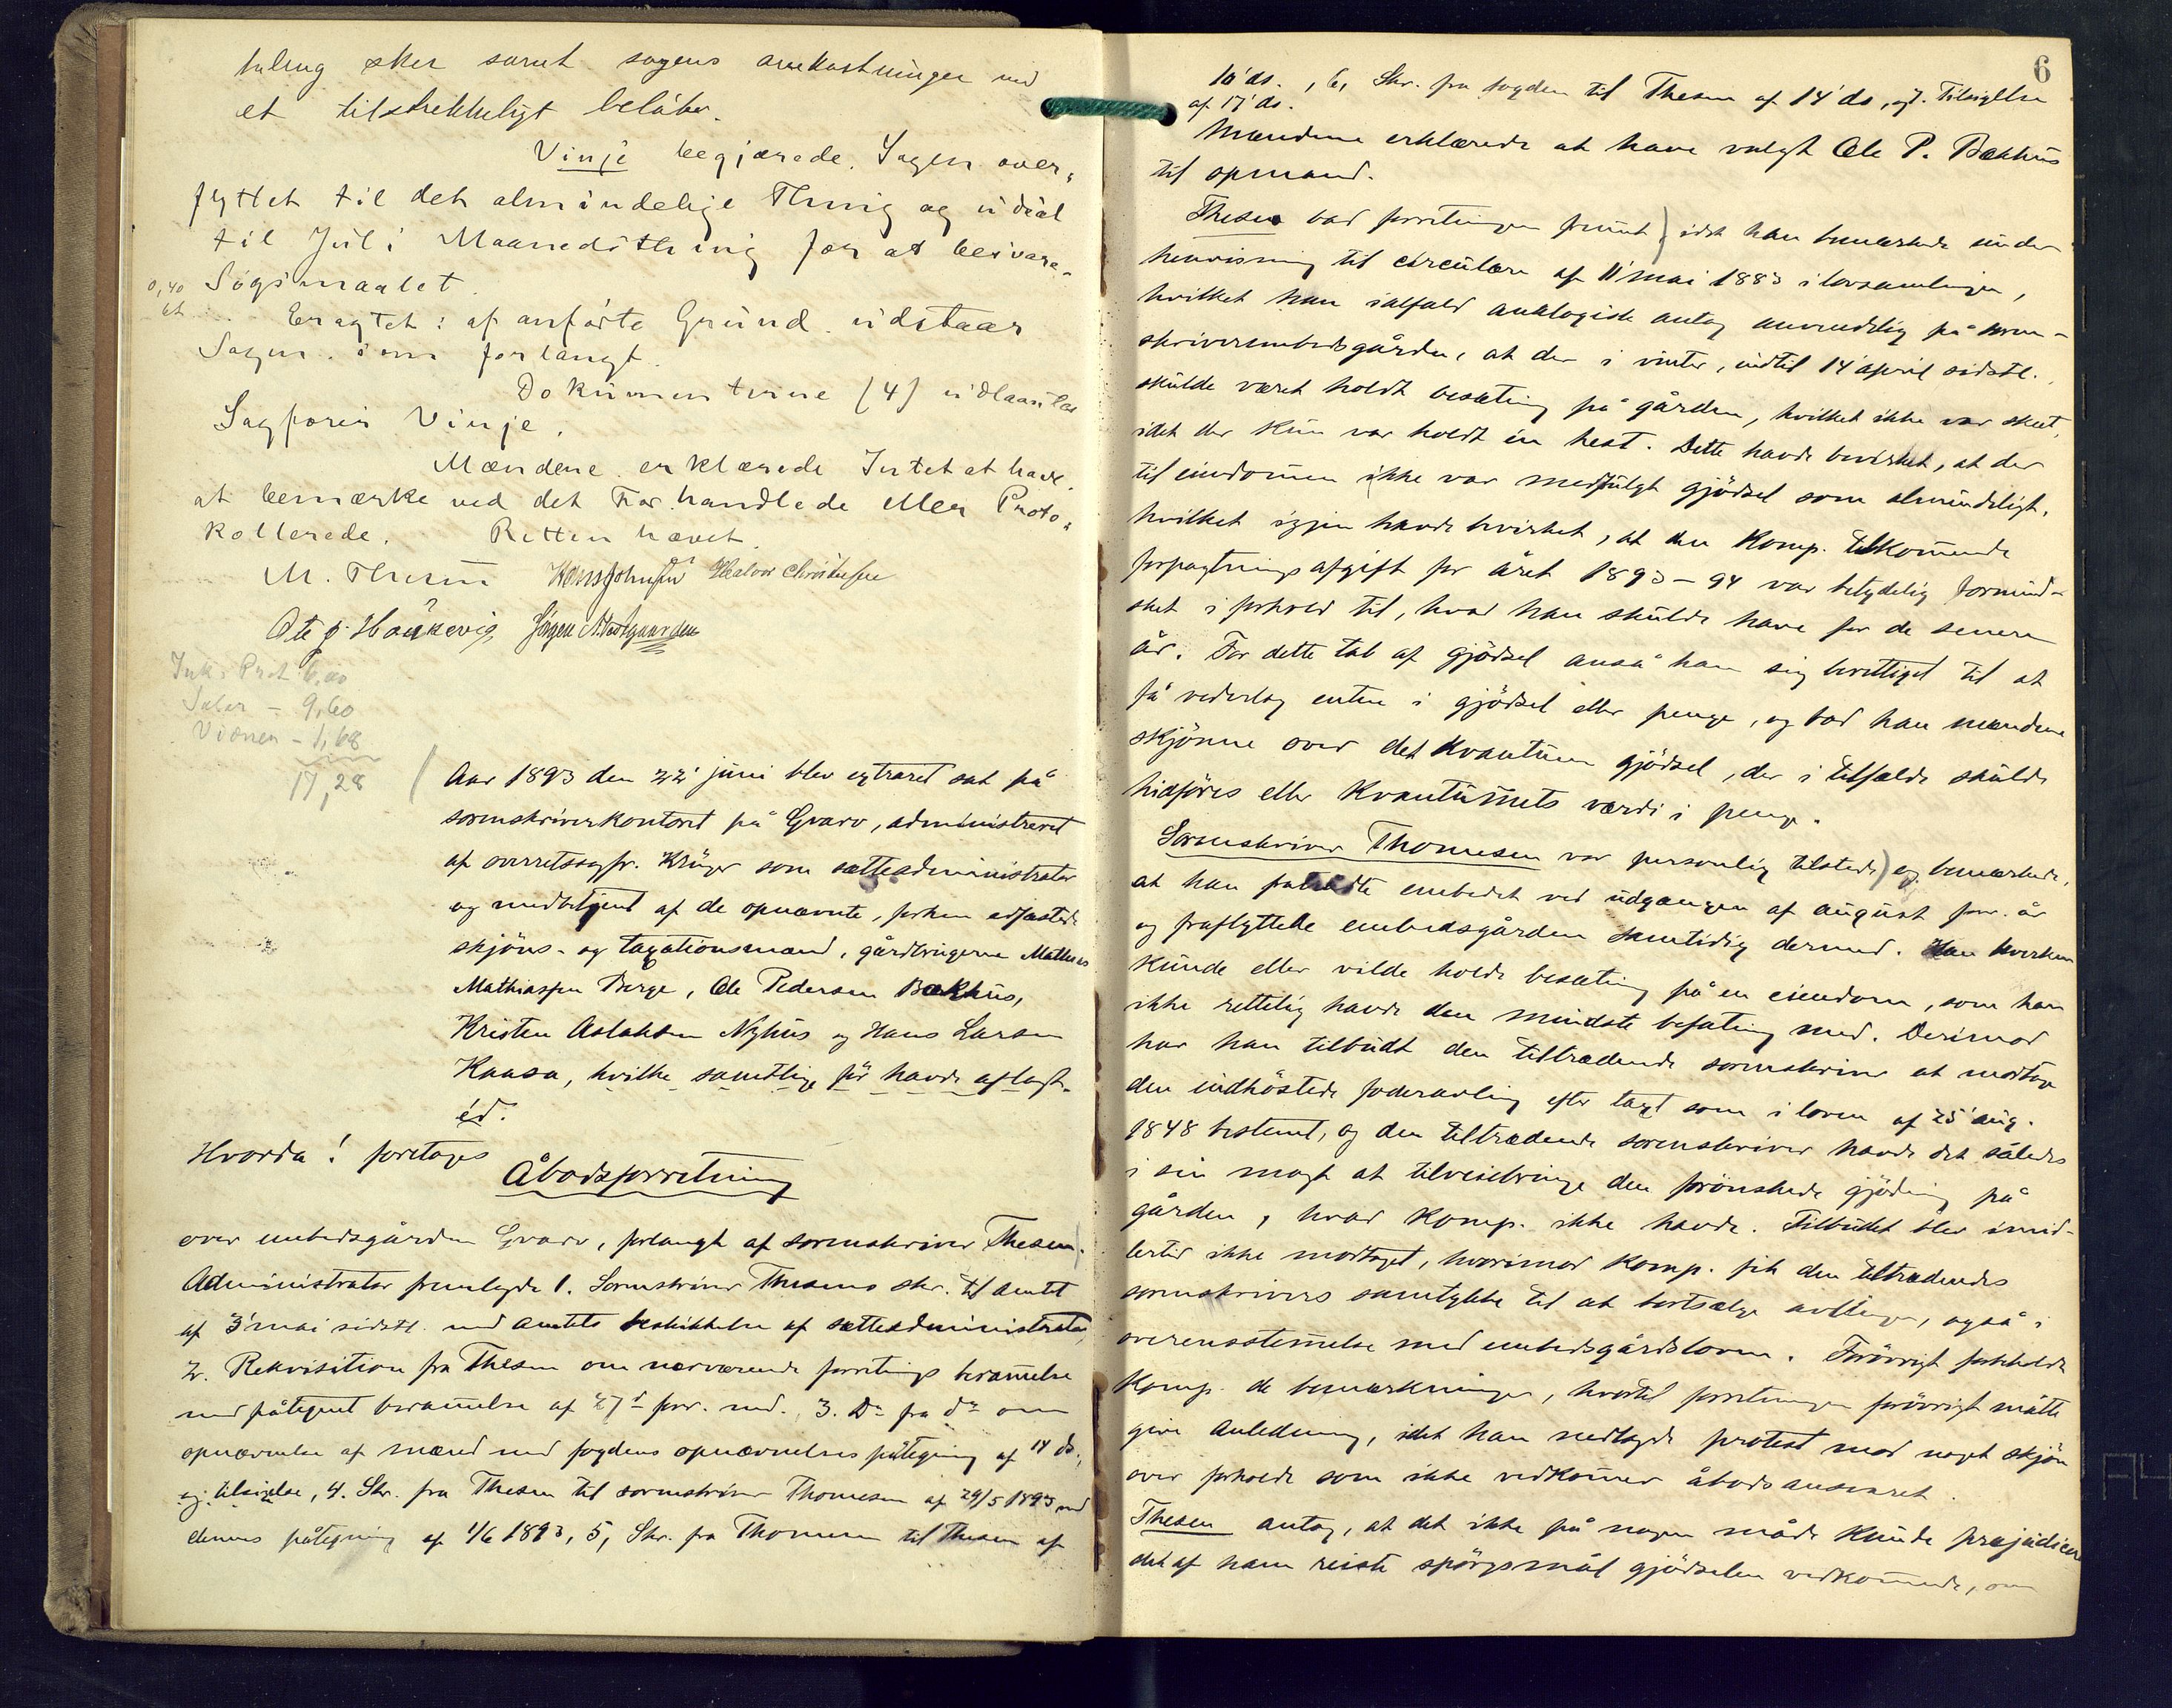 taling sker samt sagens omkostninger med
et tilstrekkeligt beløb.
Vinje begjærede Sagen over-
flyttet til det almindelige Thing og udsat
til Juli Maanedsthing for at besvare
Søgsmaalet.
0,40
Eragtet: af anførte Grund udstaar
Sagen som forlangt.
Dokumenterne (4) udlaantes
Sagfører Vinje.
Mændene erklærede Intet at have
at bemærke ved det Forhandlede eller Proto-
kollerede. Retten hævet.
M. Thesen Hans Johnsen Halvor Christensen
Ole J. Haukevig Jørgen N. Nordgaarden
Ink: Prot 6,00
9,60
Vidner - 1,68
17,28
Aar 1893 den 22' juni blev extraret sat på
sorenskriverkontoret på Gvarv, administreret
af overretssagfr. Krüger som sætteadministrator
og medbetjent af de opnævnte, forhen edfæstede
skjöns- og taxationsmænd, gårdbrugerne Mathias
Mathiassen Berge, Ole Pedersen Bækhus,
Kristen Aslaksen Nyhus og Hans Larsen
Kaasa, hvilke samtlige för havde aflagt
éd.
Hvorda! foretoges
Åbodsforretning
over embedsgården Gvarv, forlangt af sorenskriver Thesen.
Administrator fremlagde 1. Sorenskriver Thesens skr. til amtet
af 3' mai sidstl. med amtets beskikkelse af sætteadministrator,
2. Rekvisition fra Thesen om nærværende forretnings berammelse
med påtegnet berammelse af 27d forr. md., 3. Do fra do om
opnævnelse af mænd med fogdens opnævnelses påtegning af 14 ds.,
og tilsigelse, 4. Skr. fra Thesen til sorenskriver Thomesen af 29/5 1893 med
dennes påtegning af 1/6 1893, 5, Skr. fra Thomesen til Thesen af
6
10' ds., 6, Skr. fra fogden til Thesen af 14' ds., og 7. Tilsigelse
af 17' ds.
Mændene erklærede at have valgt Ole P. Bækhus
til opmand.
Thesen bad forretningen fremt) idet han bemærkede under
henvisning til circulære af 11' mai 1883 i lovsamlingen,
hvilket han ialfald analogisk antog anvendelig på soren-
skriverembedsgården, at der i vinter, indtil 14' april sidstl.,
skulde været holdt besætning på gården, hvilket ikke var skeet,
idet der kun var holdt én hest. Dette havde bevirket, at der
til eiendommen ikke var medfulgt gjödsel som almindeligt,
hvilket igjen havde bevirket, at den komp. tilkommende
forpagtningsafgift for året 1893-94 var betydelig formind-
sket i forhold til, hvad han skulde have for de senere
år. For dette tab af gjödsel anså han sig berettiget til at
få vederlag enten i gjödsel eller penge, og bad han mændene
skjönne over det kvantum gjödsel, der i tilfælde skulde
hidföres eller kvantummets værdi i penge.
Sorenskriver Thomesen var personlig tilstede) og bemærkede,
at han fratrådte embedet ved udgangen af august forr. år
og fraflyttede embedsgården samtidig dermed. Han hverken
kunde eller vilde holde besætning på en eiendom, som han
ikke rettelig havde den mindste befatning med. Derimod
har han tilbudt den tiltrædende sorenskriver at modtage
den indhöstede foderavling efter taxt som i loven af 25' aug.
1848 bestemt, og den tiltrædende sorenskriver havde det således
i sin magt at tilveiebringe den forönskede gjödning på
gården, hvad komp. ikke havde. Tilbudet blev imid-
lertid ikke modtaget, hvorimod komp. fik den tiltrædendes
sorenskrivers samtykke til at bortsælge avlingen, også i
overensstemmelse med embedsgårdsloven. Forövrigt forbeholdt
komp. de bemærkninger, hvortil forretningen forövrigt måtte
give anledning, idet han nedlagde protest mod noget skjön
over forholde som ikke vedkommer åbodsansvaret.
Thesen antog, at det ikke på nogen måde kunde præjudicere
det af ham reiste spörgsmål gjödselen vedkommende, om